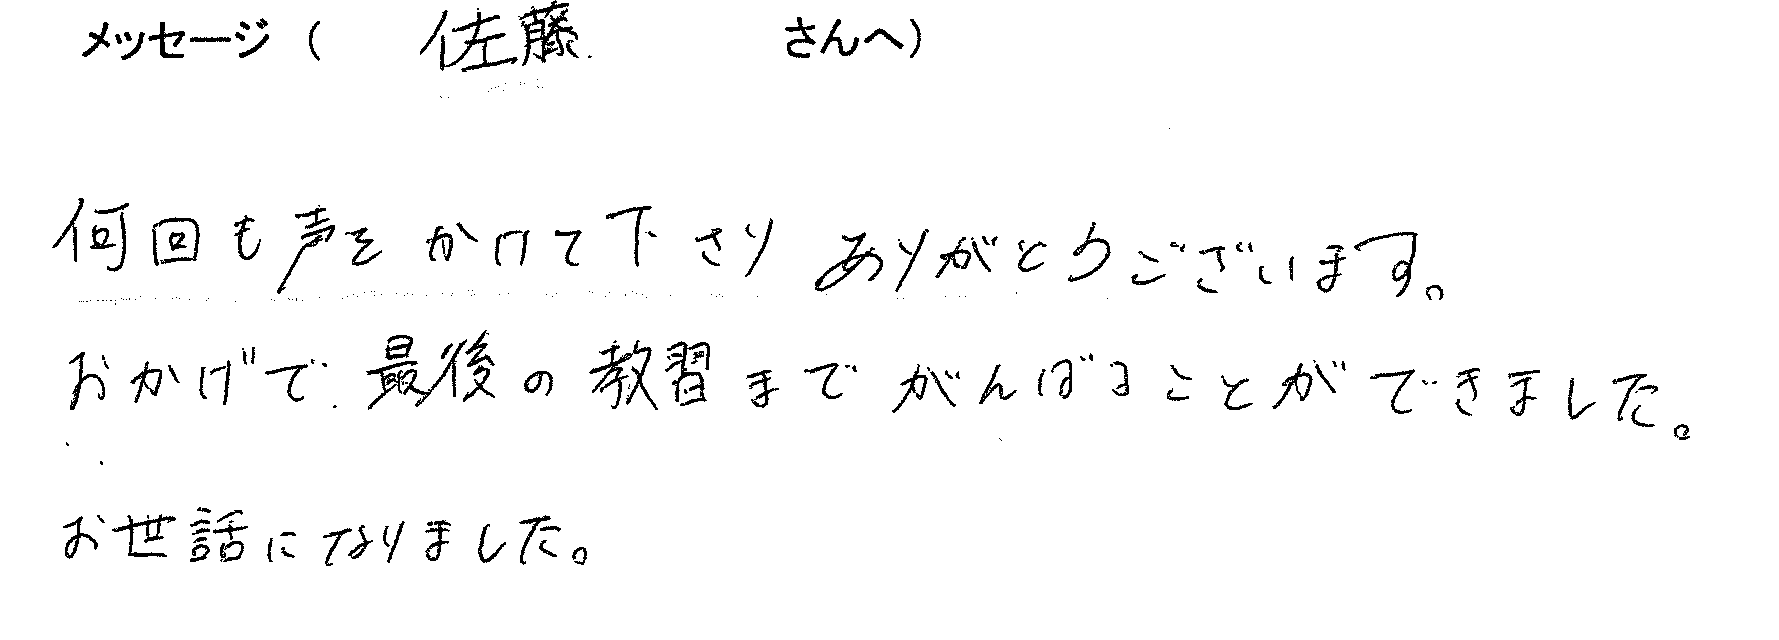 メッセージ（ 佐藤 さんへ）
何回も声をかけて下さりありがとうございます。
おかげで最後の教習までがんばることができました。
お世話になりました。